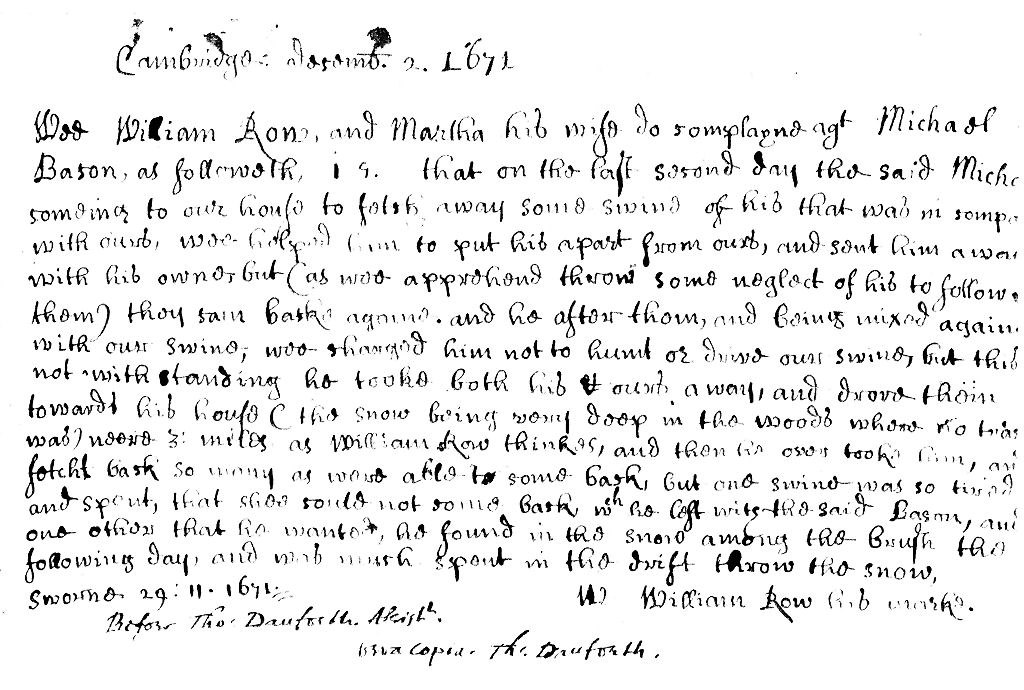 Cambridge: decemb. 2. 1671
Wee William Row, and Martha his wife do complayne agt Michael
Bacon, as followeth, i s. that on the last second day the said Micha
comeing to our house to fetch away some swine of his that was in compa
with ours, wee helped him to put his apart from ours, and sent him away
with his owne, but (as wee apprehend throw some neglect of his to follow
them) they cam backe againe. and he after them, and being mixed again
with our swine, wee charged him not to hunt or drive our swine, but this
not withstanding he tooke both his & ours away, and drove them
towards his house (the snow being very deep in the woods where no trac
was) neere 3: miles as William Row thinkes, and then he over tooke him, an
fetcht back so many as were able to come back, but one swine was so tired
and spent, that shee could not come back, wch he left with the said Bacon, and
one other that he wanted, he found in the snow among the brush the
following day, and was much spent in the drift throw the snow,
Sworne 29: 11. 1671:
W William Row his marke.
Before Tho: Danforth. Assist.
vera copia. Tho. Danforth.